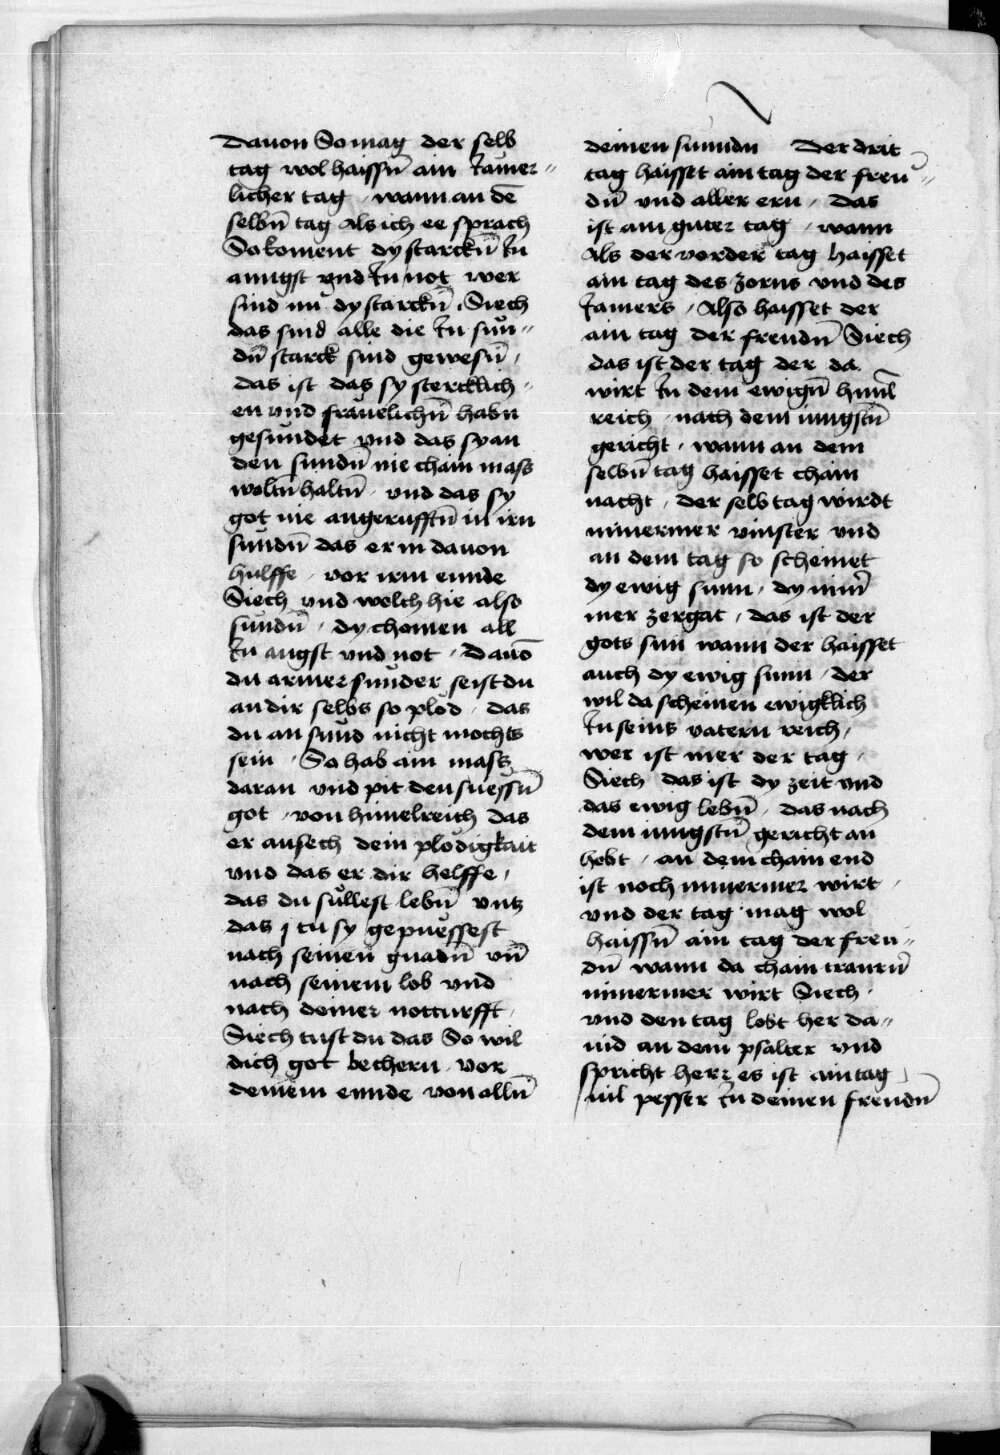 dauon So mag der selb
tag wol haissn̄ ain Iamer⸗
licher tag / wann an dē
selbn̄ tag als ich ee sprach
So koment dy starckn̄ In
anngst vnd In not wer
sind nů dy starckn̄ Siech
das sind alle die In sůn⸗
dn̄ starck sind gewesn̄ /
das ist das sy stercklich⸗
en vnd fräuelichn̄ habn
gesůndet vnd das sy an
den sundn̄ nie chain mass
woltn̄ haltn̄ / vnd das sy
got nie angerufftn̄ in irn
sůndn̄ das er in dauon
hulffe / vor irm ennde
Siech vnd welch hie also
sůndn̄ / dy chomen all
In angst vnd not / Dauō
du armer sůnder seist du
an dir selbs so plöd / das
du an sůnd nicht mochts
sein / So hab ain mass
daran vnd pit den suessn̄
got / von himelreich das
er ansech dein plödigkait
vnd das er dir helffe /
das du sůllest lebn̄ vntz
das j tu sy gepůessest
nach seinen gnadn̄ vn̄
nach seinem lob vnd
nach deiner notturfft /
Siech tust du das So wil
dich got bechern / vor
deinem ennde von alln̄
deinen sunndn Der drit
tag haisset ain tag der freů⸗
dn̄ vnd aller ern / das
ist ain guter tag / wann
als der vorder tag haisset
ain tag des zorns vnd des
Iamers / Also haisset der
ain tag der freudn̄ Siech
das ist der tag der da
wirt In dem ewign̄ himl̄
reich / nach dem iungstn̄
gericht / wann an dem
selbn̄ tag haisset chain
nacht / der selb tag wirdt
nimermer vinster vnd
an dem tag so scheinet
dy ewig sunn / dy nim̄
mer zergat / das ist der
gots sun wann der haisset
auch dy ewig sunn / der
wil da scheinen ewigklich
In seins vatern reich /
wer ist mer der tag /
Siech das ist dy zeit vnd
das ewig lebn̄ / das nach
dem iungstn̄ gericht an
hebt / an dem chain end
ist noch nimermer wirt /
vnd der tag mag wol
haissn̄ ain tag der freu⸗
dn̄ wann da chain traurn̄
nimermer wirt Siech /
vnd den tag lobt her da⸗
uid an dem psalter vnd
spricht herr es ist ain tag
uil pesser In deinen freudn̄